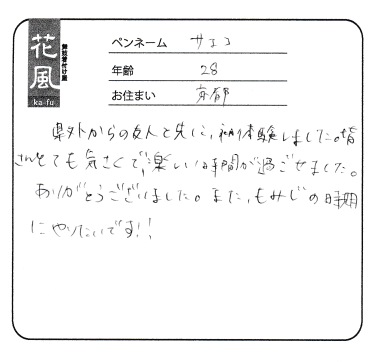 花風
舞妓着付け屋
ka-fu
ペンネーム サエコ
年齢 28
お住まい 京都
県外からの友人と共に、初体験しました。皆
さんとても気さくで、楽しい時間が過ごせました。
ありがとうございました。また、もみじの時期
にやりたいです!!